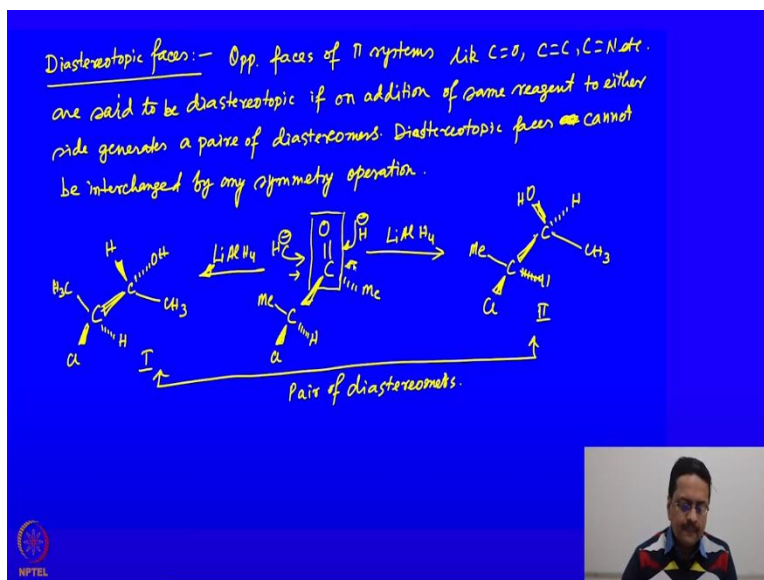 Diastereotopic faces:- Opp. faces of π systems lik C=O, C=C, C=N etc.
are said to be diastereotopic if on addition of same reagent to either
side generates a paire of diastereomers. Diastereotopic faces cannot
be interchanged by any symmetry operation.
H OH H3C C C CH3 H Cl I
LiAlH4
H⊖ O H⊖ C Me Me C H Cl
LiAlH4
HO H Me C C CH3 H Cl II
Pair of diastereomers.
NPTEL